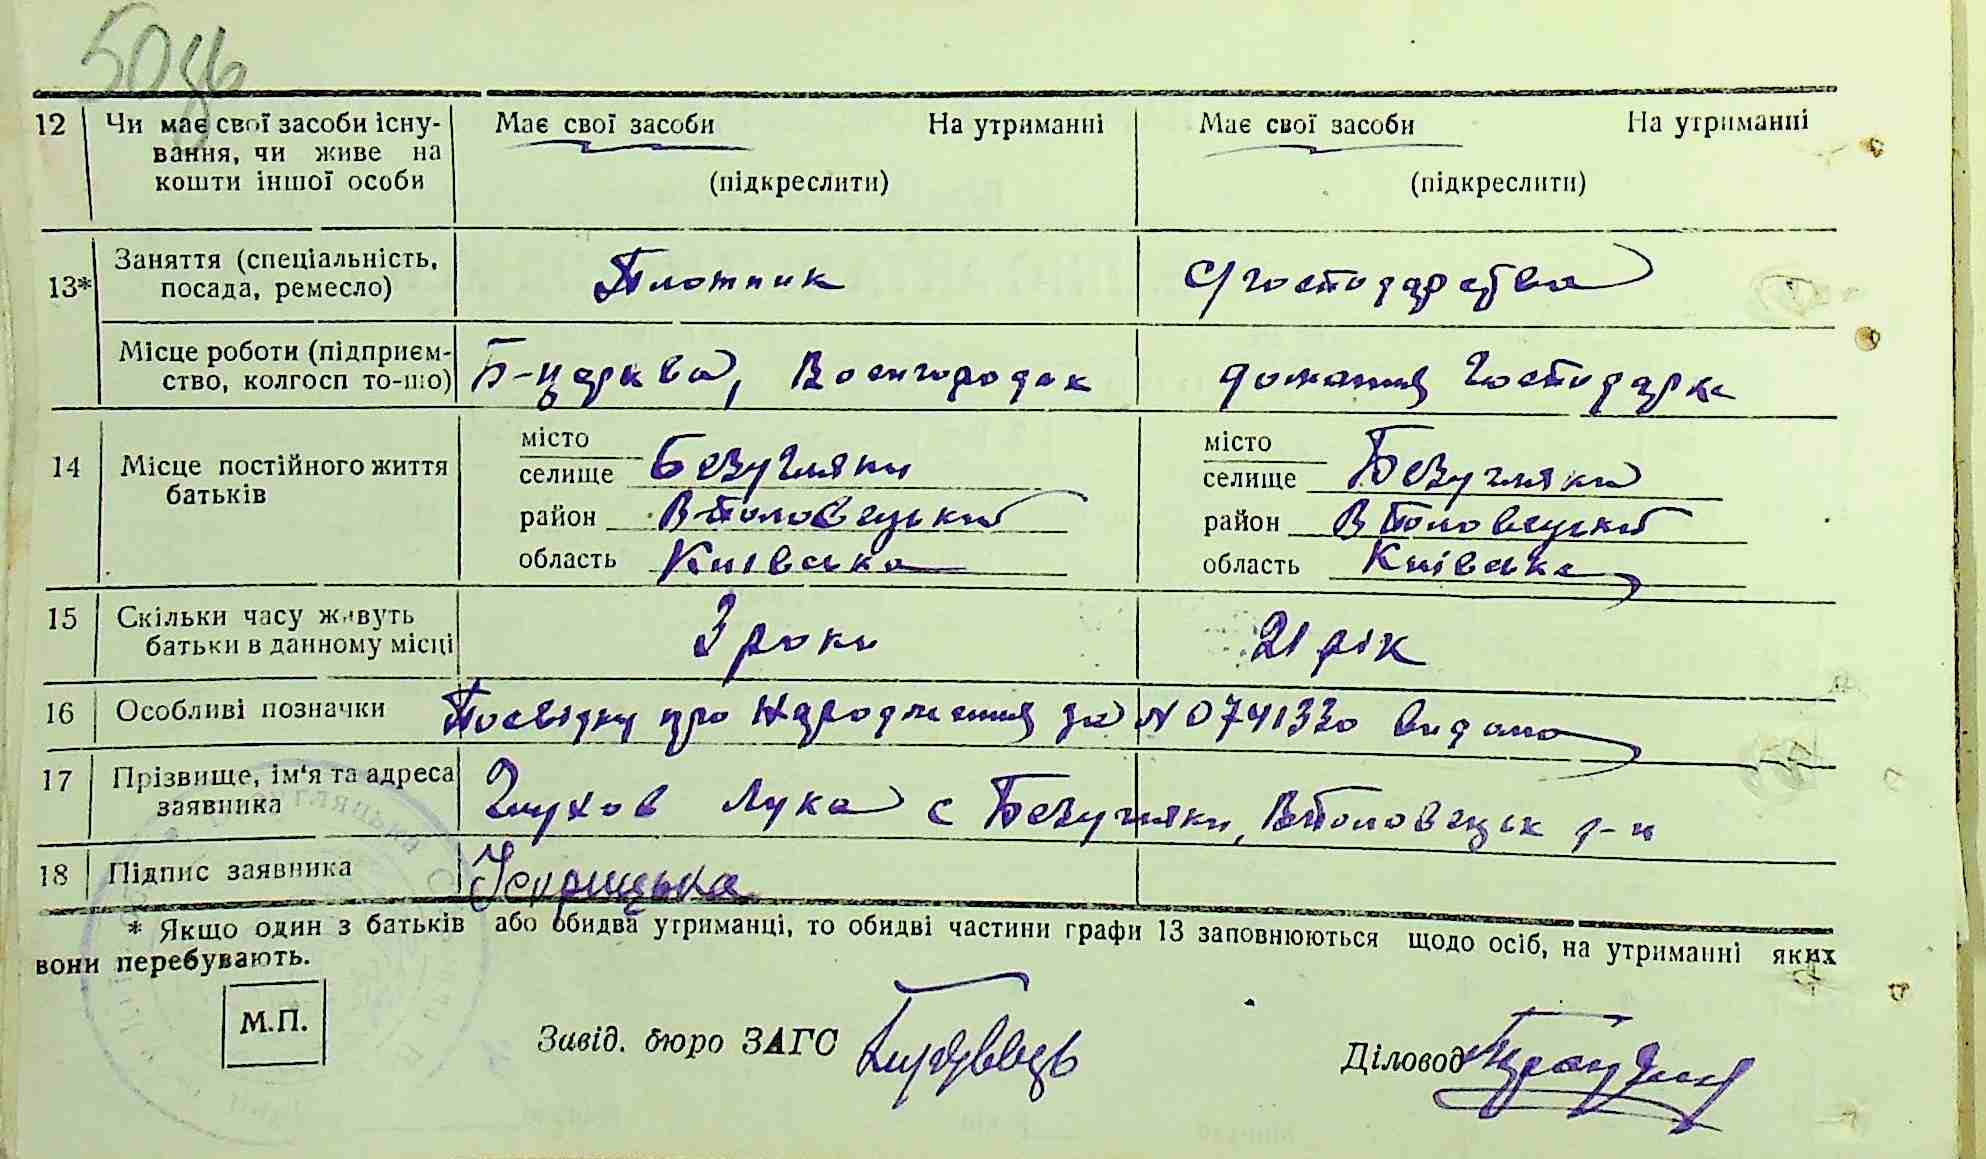 12 Чи має свої засоби існу- Має свої засоби На утриманні Має свої засоби На утриманні
вання, чи живе на
кошти іншої особи (підкреслити) (підкреслити)
13* Заняття (спеціальність, Плотник с/господарства
посада, ремесло)
Місце роботи (підприєм- Б-церква, Воєнгородок домашня господарка
ство, колгосп то-що)
14 Місце постійного життя місто місто
батьків селище Безугляки селище Безугляки
район В-Половецький район В Половецький
область Київська область Київська
15 Скільки часу живуть 3 роки 21 рік
батьки в данному місці
16 Особливі позначки Посвідку про народження за N 0741330 видано
17 Прізвище, ім'я та адреса Глухов Лука с Безугляки, В Половецьк р-н
заявника
18 Підпис заявника
* Якщо один з батьків або обидва утриманці, то обидві частини графи 13 заповнюються щодо осіб, на утриманні яких
вони перебувають.
М.П.
Завід. бюро ЗАГС
Діловод